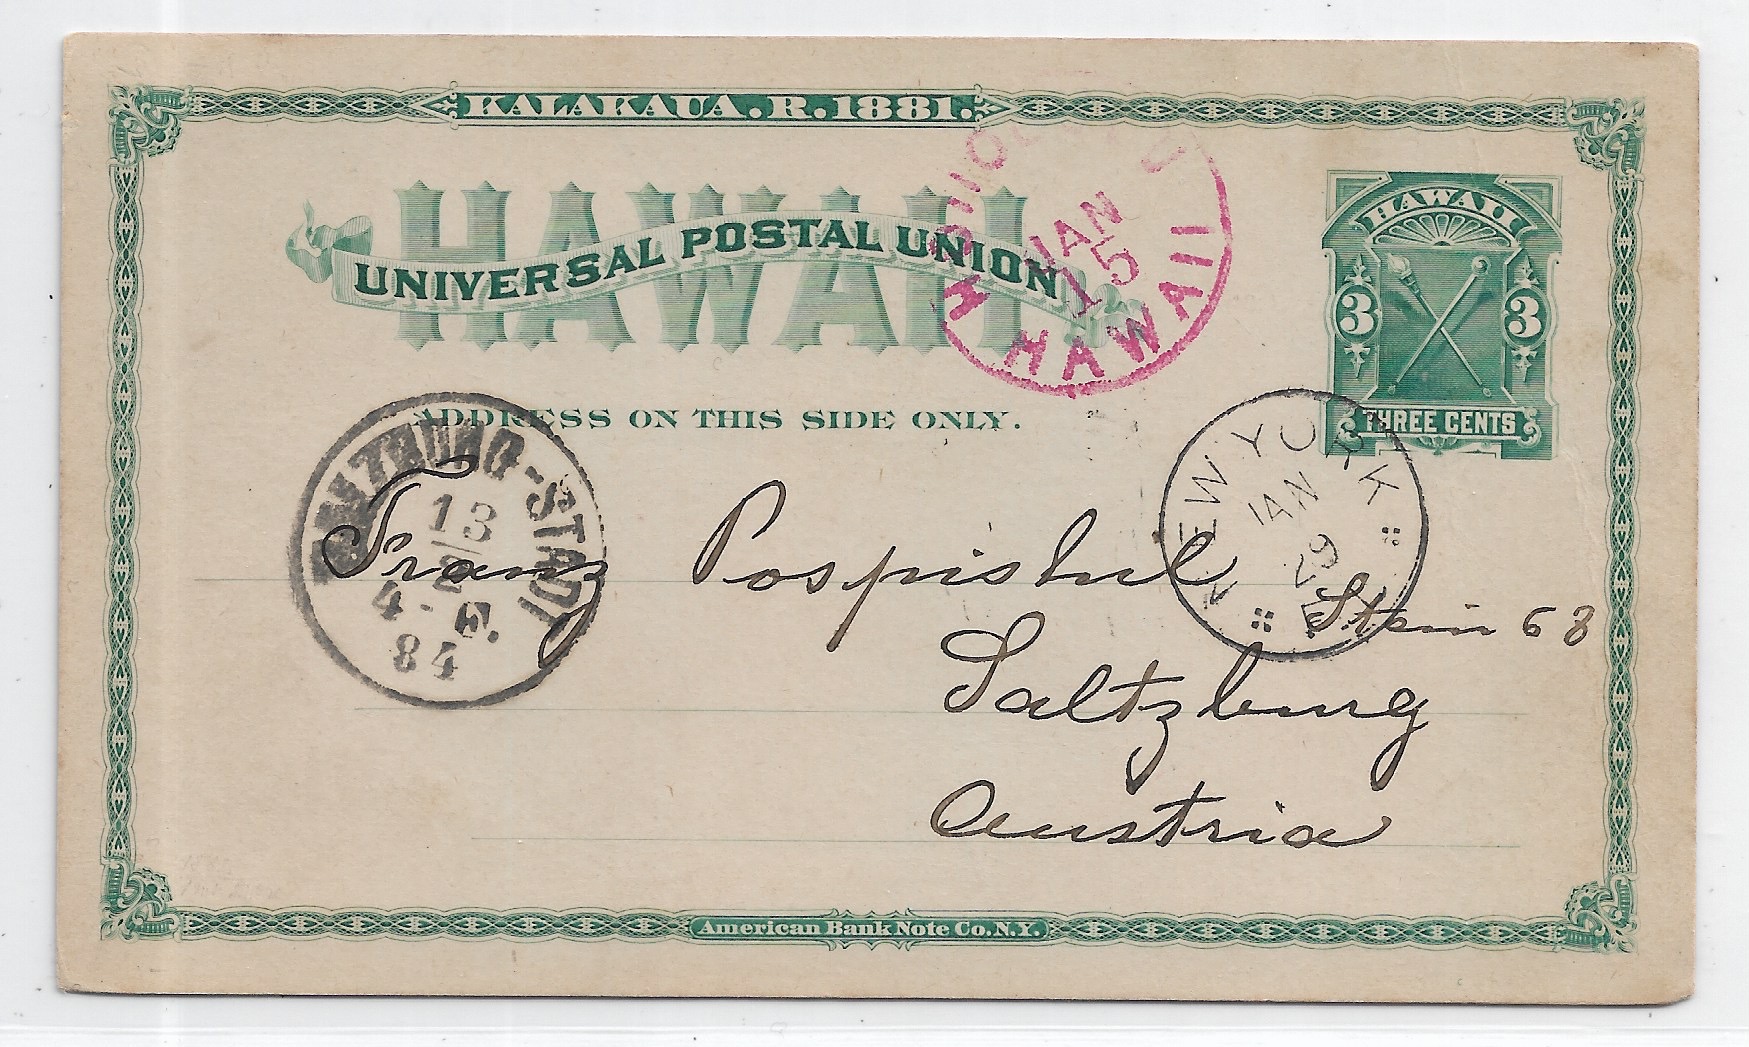 KALAKAUA.R.1881.
HAWAII
UNIVERSAL POSTAL UNION
JAN
15
HAWAII
HAWAII
3 3
THREE CENTS
ADDRESS ON THIS SIDE ONLY.
SALZBURG-STADT
13
2
4-6.
84
NEW YORK
JAN
29
Franz Pospishil
Stein 68
Saltzburg
Austria
American Bank Note Co. N.Y.